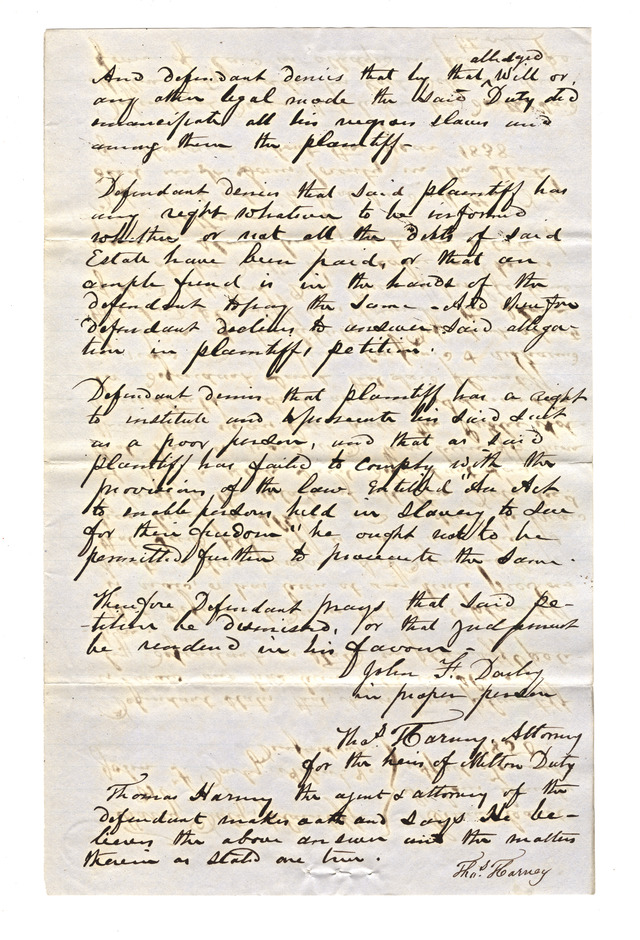 alledged
And defendant denies that by that ^ Will or
any other legal mode the said Duty did
emancipate all his negroes slaves and
among them the plaintiff-
Defendant denies that said plaintiff has
any right whatever to be informed
whether or not all the debts of said
Estate have been paid, or that an
ample fund is in the hands of the
defendant to pay the same - And therefore
Defendant declines to answer said allega-
tion in plaintiffs petition.
Defendant denies that plaintiff has a right
to institute and prosecute his said suit
as a poor person, and that as said
plaintiff has failed to comply with the
provisions of the law. Entitled "An Act
to enable persons held in slavery to sue
for their freedom" he ought not to be
permitted further to prosecute the same.
Therefore Defendant prays that said pe-
-tition be dismissed, or that judgment
be rendered in his favour -
John F. Darby
in proper person
Thos. Harney, Attorney
for the heirs of Milton Duty
Thomas Harney the agent & attorney of the
defendant makes oath and says He be-
lieves the above answer and the matters
therein as stated are true.
Thos. Harney